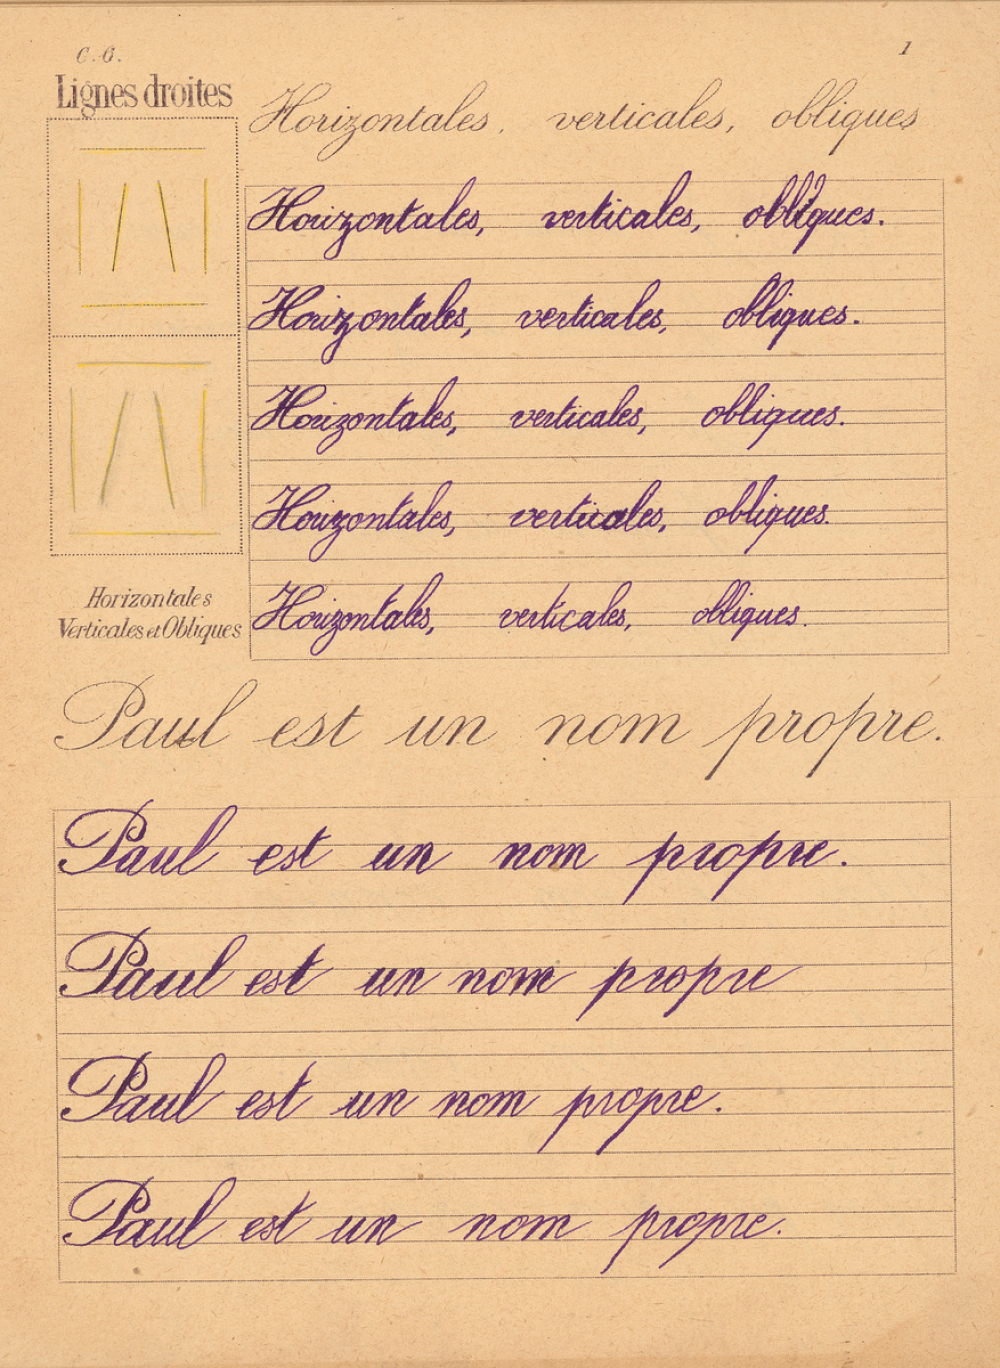 C. B.
1
Lignes droites
Horizontales, verticales, obliques
Horizontales, verticales, obliques.
Horizontales, verticales, obliques.
Horizontales, verticales, obliques.
Horizontales, verticales, obliques.
Horizontales, verticales, obliques.
Horizontales
Verticales et Obliques
Paul est un nom propre.
Paul est un nom propre.
Paul est un nom propre
Paul est un nom propre.
Paul est un nom propre.